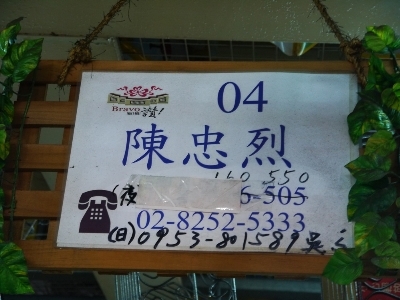 04
Bravo 讚!
陳忠烈
160 550
(夜
6-505
02-8252-5333
(日)0953-801589吳